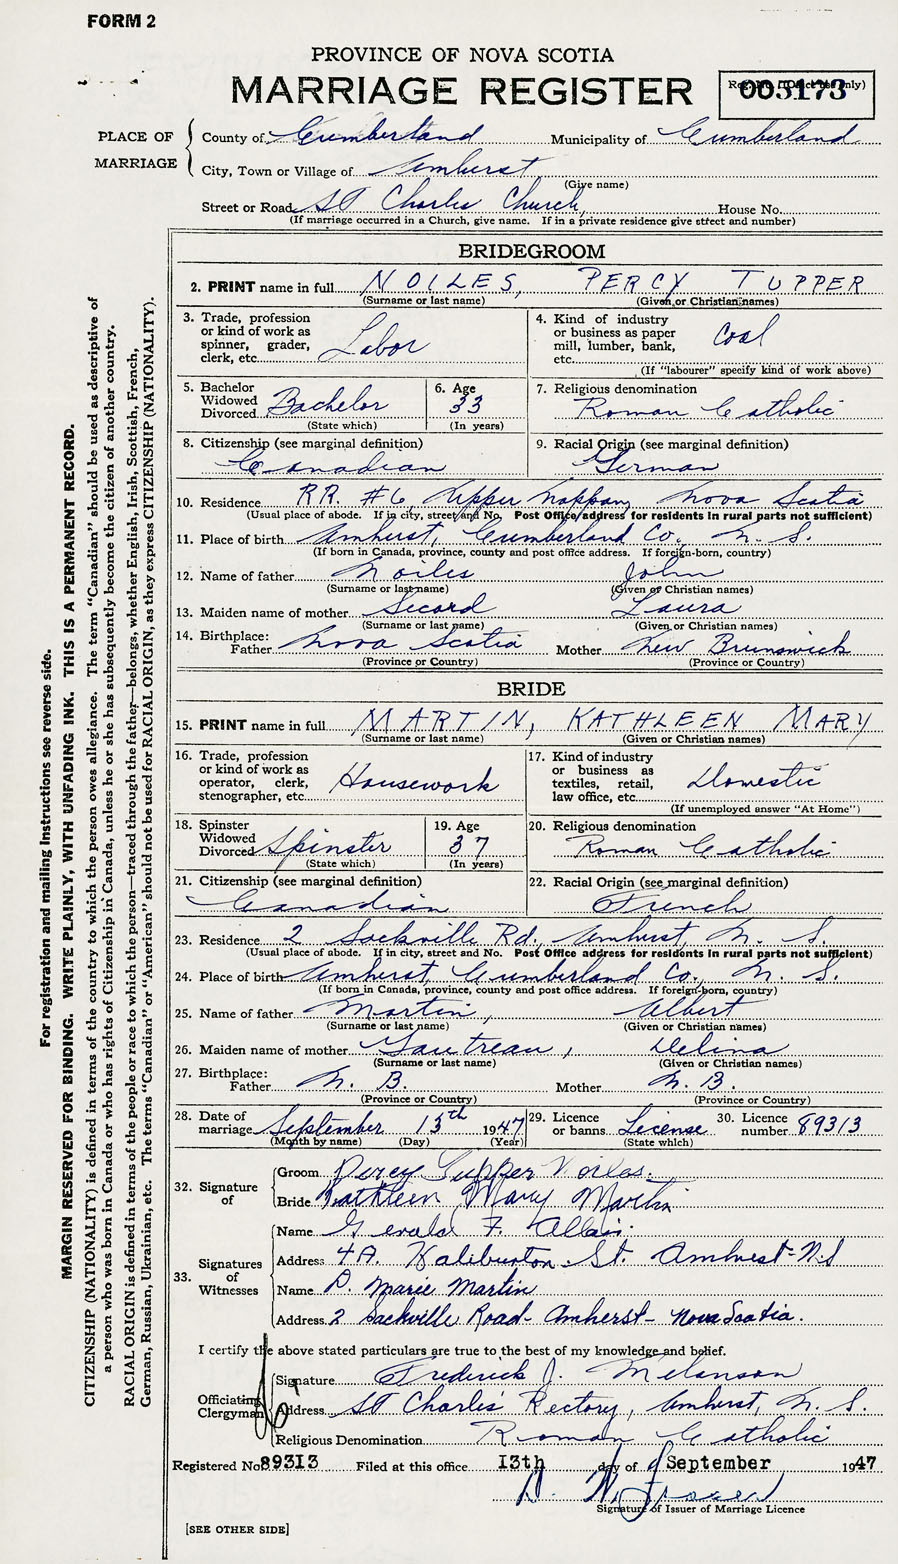 FORM 2
PROVINCE OF NOVA SCOTIA
MARRIAGE REGISTER
005173
PLACE OF MARRIAGE
County of Cumberland Municipality of Cumberland
City, Town or Village of Amherst
(Give name)
Street or Road St Charles Church, House No.
(If marriage occurred in a Church, give name. If in a private residence give street and number)
BRIDEGROOM
2. PRINT name in full NOILES, PERCY TUPPER
(Surname or last name) (Given or Christian names)
3. Trade, profession or kind of work as spinner, grader, clerk, etc. Labor
4. Kind of industry or business as paper mill, lumber, bank, etc. Coal
(If "labourer" specify kind of work above)
5. Bachelor Widowed Divorced Bachelor
(State which)
6. Age 33
(In years)
7. Religious denomination Roman Catholic
8. Citizenship (see marginal definition) Canadian
9. Racial Origin (see marginal definition) German
10. Residence RR. #6, Upper Nappan, Nova Scotia
(Usual place of abode. If in city, street and No. Post Office address for residents in rural parts not sufficient)
11. Place of birth Amherst, Cumberland Co., N. S.
(If born in Canada, province, county and post office address. If foreign-born, country)
12. Name of father Noiles John
(Surname or last name) (Given or Christian names)
13. Maiden name of mother Secord Laura
(Surname or last name) (Given or Christian names)
14. Birthplace: Father Nova Scotia Mother New Brunswick
(Province or Country) (Province or Country)
BRIDE
15. PRINT name in full MARTIN, KATHLEEN MARY
(Surname or last name) (Given or Christian names)
16. Trade, profession or kind of work as operator, clerk, stenographer, etc. Housework
17. Kind of industry or business as textiles, retail, law office, etc. Domestic
(If unemployed answer "At Home")
18. Spinster Widowed Divorced Spinster
(State which)
19. Age 37
(In years)
20. Religious denomination Roman Catholic
21. Citizenship (see marginal definition) Canadian
22. Racial Origin (see marginal definition) French
23. Residence 2 Sackville Rd., Amherst, N. S.
(Usual place of abode. If in city, street and No. Post Office address for residents in rural parts not sufficient)
24. Place of birth Amherst, Cumberland Co., N. S.
(If born in Canada, province, county and post office address. If foreign-born, country)
25. Name of father Martin, Albert
(Surname or last name) (Given or Christian names)
26. Maiden name of mother Gautreau, Delina
(Surname or last name) (Given or Christian names)
27. Birthplace: Father N. B. Mother N. B.
(Province or Country) (Province or Country)
28. Date of marriage September 13th 1947
(Month by name) (Day) (Year)
29. Licence or banns License
(State which)
30. Licence number 89313
32. Signature of
Groom Percy Tupper Noiles.
Bride Kathleen Mary Martin
33. Signatures of Witnesses
Name Gerald F. Allain
Address 4A. Haliburton St. Amherst-N.S
Name D. Marie Martin
Address 2 Sackville Road-Amherst-Nova Scotia.
I certify the above stated particulars are true to the best of my knowledge and belief.
Officiating Clergyman
Signature Frederick J. Melanson
Address St Charles' Rectory, Amherst, N. S.
Religious Denomination Roman Catholic
Registered No. 89313 Filed at this office 13th day of September 1947
Signature of Issuer of Marriage Licence
[SEE OTHER SIDE]
For registration and mailing instructions see reverse side.
MARGIN RESERVED FOR BINDING. WRITE PLAINLY, WITH UNFADING INK. THIS IS A PERMANENT RECORD.
CITIZENSHIP (NATIONALITY) is defined in terms of the country to which the person owes allegiance. The term "Canadian" should be used as descriptive of
a person who was born in Canada or who has rights of Citizenship in Canada, unless he or she has subsequently become the citizen of another country.
RACIAL ORIGIN is defined in terms of the people or race to which the person—traced through the father—belongs, whether English, Irish, Scottish, French,
German, Russian, Ukrainian, etc. The terms "Canadian" or "American" should not be used for RACIAL ORIGIN, as they express CITIZENSHIP (NATIONALITY).